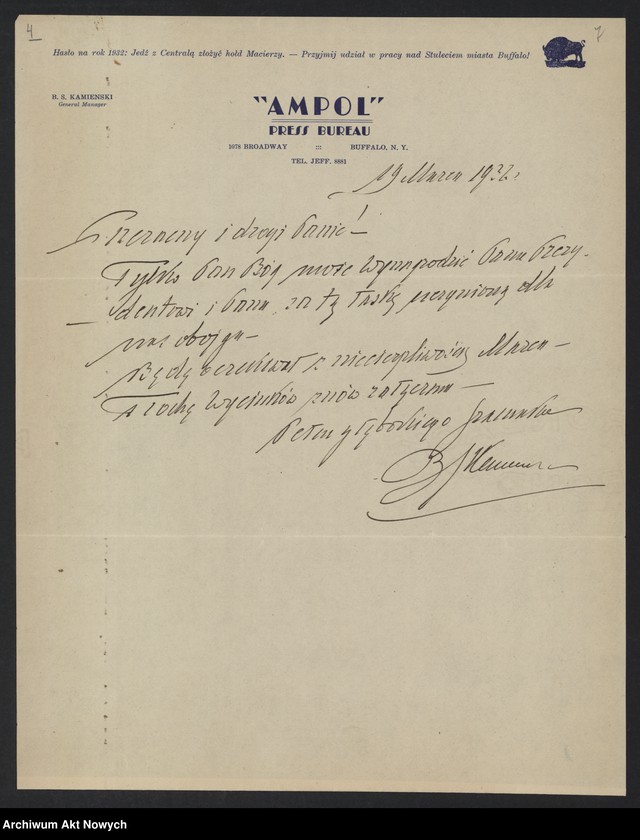 4
7
Hasło na rok 1932: Jedź z Centralą złożyć hołd Macierzy. — Przyjmij udział w pracy nad Stuleciem miasta Buffalo!
B. S. KAMIENSKI
General Manager
"AMPOL"
PRESS BUREAU
1078 BROADWAY ::: BUFFALO, N. Y.
TEL. JEFF. 8881
19 Marca 1932 r
Szanowny i drogi Panie! —
Tylko Pan Bóg może wynagrodzić Panu Prezy-
dentowi i Panu, za tę łaskę uczynioną dla
nas obojga —
Będę oczekiwał z niecierpliwością Marca —
Trochę wycinków znów załączam —
Pełen głębokiego szacunku
B S Kamienski
Archiwum Akt Nowych